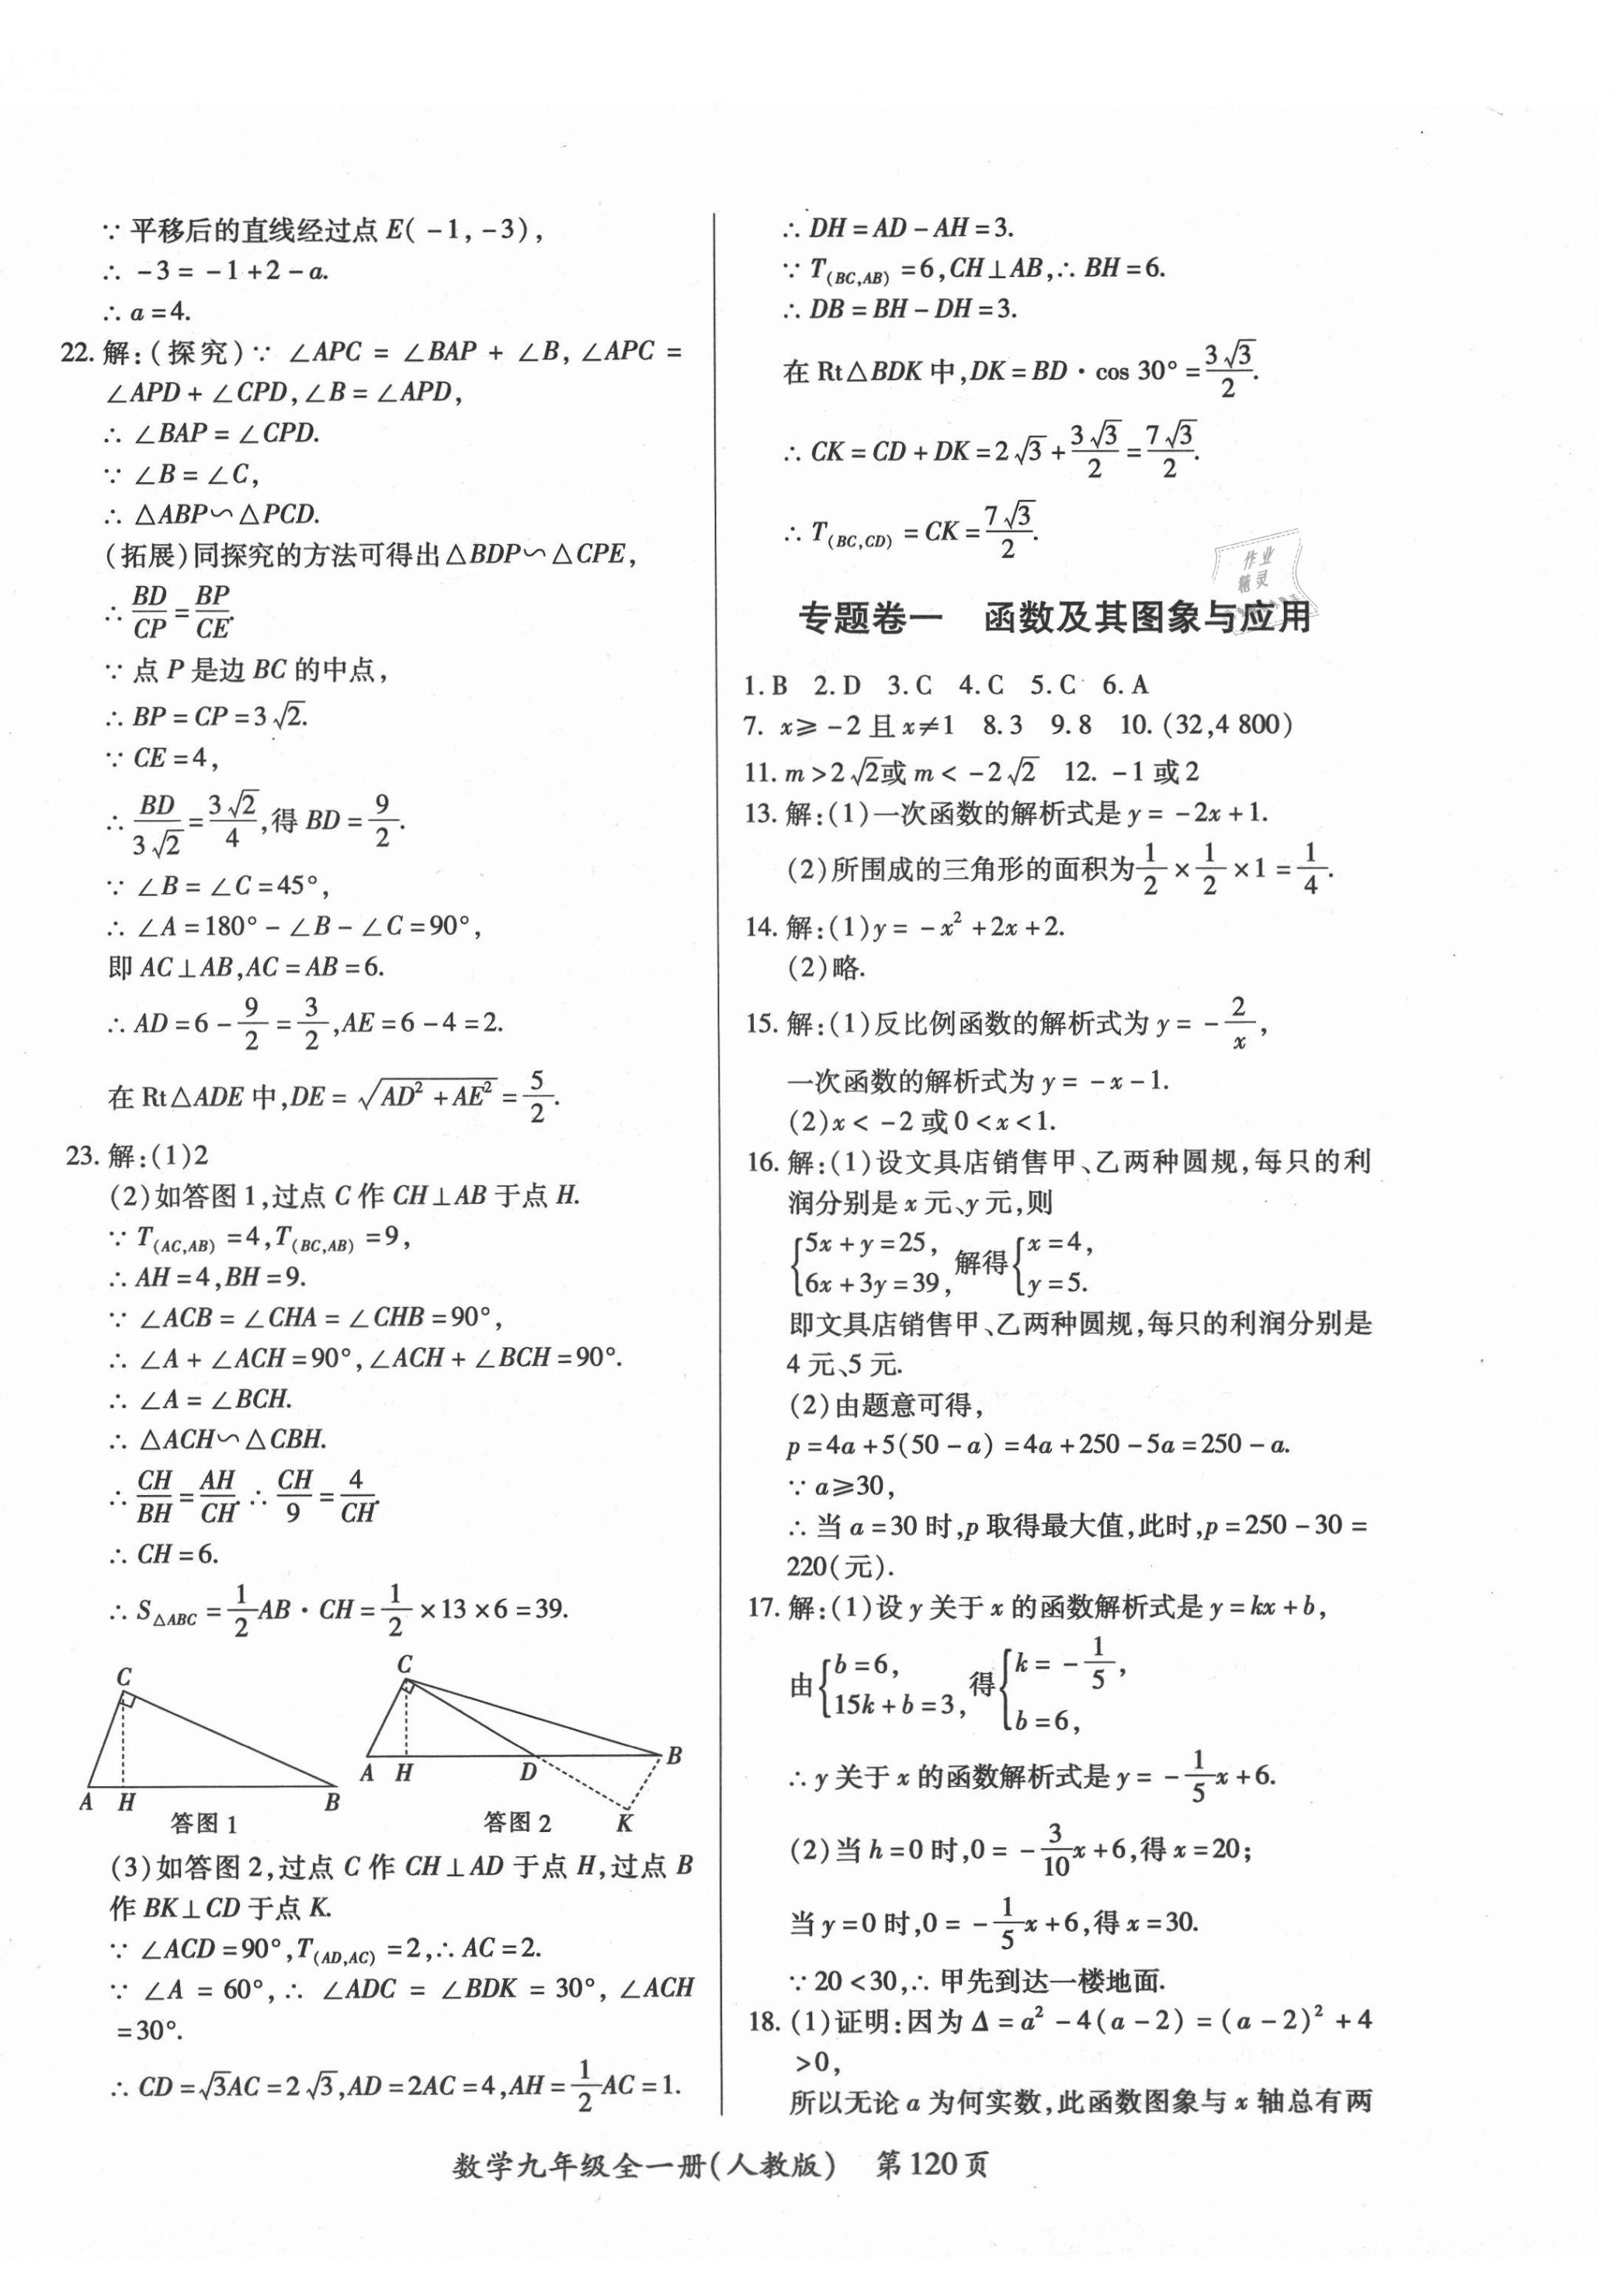 ∵ 平移后的直线经过点 E( -1, -3),
∴ -3 = -1 +2 - a.
∴ a = 4.
22. 解:(探究)∵ ∠APC = ∠BAP + ∠B, ∠APC =
∠APD + ∠CPD, ∠B = ∠APD,
∴ ∠BAP = ∠CPD.
∵ ∠B = ∠C,
∴ △ABP∽△PCD.
(拓展)同探究的方法可得出△BDP∽△CPE,
∴ BD/CP = BP/CE.
∵ 点 P 是边 BC 的中点,
∴ BP = CP = 3√2.
∵ CE = 4,
∴ BD/3√2 = 3√2/4, 得 BD = 9/2.
∵ ∠B = ∠C = 45°,
∴ ∠A = 180° - ∠B - ∠C = 90°,
即 AC⊥AB, AC = AB = 6.
∴ AD = 6 - 9/2 = 3/2, AE = 6 - 4 = 2.
在 Rt△ADE 中, DE = √(AD² + AE²) = 5/2.
23. 解:(1)2
(2)如答图 1,过点 C 作 CH⊥AB 于点 H.
∵ T(AC,AB) = 4, T(BC,AB) = 9,
∴ AH = 4, BH = 9.
∵ ∠ACB = ∠CHA = ∠CHB = 90°,
∴ ∠A + ∠ACH = 90°, ∠ACH + ∠BCH = 90°.
∴ ∠A = ∠BCH.
∴ △ACH∽△CBH.
∴ CH/BH = AH/CH. ∴ CH/9 = 4/CH.
∴ CH = 6.
∴ S△ABC = 1/2 AB · CH = 1/2 ×13 ×6 = 39.
C
A H B
答图 1
C
A H D B
K
答图 2
(3)如答图 2,过点 C 作 CH⊥AD 于点 H,过点 B
作 BK⊥CD 于点 K.
∵ ∠ACD = 90°, T(AD,AC) = 2, ∴ AC = 2.
∵ ∠A = 60°, ∴ ∠ADC = ∠BDK = 30°, ∠ACH
= 30°.
∴ CD = √3AC = 2√3, AD = 2AC = 4, AH = 1/2 AC = 1.
∴ DH = AD - AH = 3.
∵ T(BC,AB) = 6, CH⊥AB, ∴ BH = 6.
∴ DB = BH - DH = 3.
在 Rt△BDK 中, DK = BD · cos 30° = 3√3/2.
∴ CK = CD + DK = 2√3 + 3√3/2 = 7√3/2.
∴ T(BC,CD) = CK = 7√3/2.
作业
精灵
专题卷一 函数及其图象与应用
1. B 2. D 3. C 4. C 5. C 6. A
7. x≥ -2 且 x≠1 8. 3 9. 8 10. (32,4 800)
11. m > 2√2或 m < -2√2 12. -1 或 2
13. 解:(1)一次函数的解析式是 y = -2x +1.
(2)所围成的三角形的面积为 1/2 × 1/2 ×1 = 1/4.
14. 解:(1)y = -x² +2x +2.
(2)略.
15. 解:(1)反比例函数的解析式为 y = -2/x,
一次函数的解析式为 y = -x -1.
(2)x < -2 或 0 < x < 1.
16. 解:(1)设文具店销售甲、乙两种圆规,每只的利
润分别是 x 元、y 元,则
{5x + y = 25, 6x + 3y = 39, 解得 {x = 4, y = 5.
即文具店销售甲、乙两种圆规,每只的利润分别是
4 元、5 元.
(2)由题意可得,
p = 4a + 5(50 - a) = 4a + 250 - 5a = 250 - a.
∵ a≥30,
∴ 当 a = 30 时,p 取得最大值,此时,p = 250 - 30 =
220(元).
17. 解:(1)设 y 关于 x 的函数解析式是 y = kx + b,
由 {b = 6, 15k + b = 3, 得 {k = -1/5, b = 6,
∴ y 关于 x 的函数解析式是 y = -1/5 x +6.
(2)当 h = 0 时,0 = -3/10 x +6,得 x = 20;
当 y = 0 时,0 = -1/5 x +6,得 x = 30.
∵ 20 < 30, ∴ 甲先到达一楼地面.
18. (1)证明:因为 Δ = a² - 4(a - 2) = (a - 2)² + 4
>0,
所以无论 a 为何实数,此函数图象与 x 轴总有两
数学九年级全一册(人教版) 第 120 页